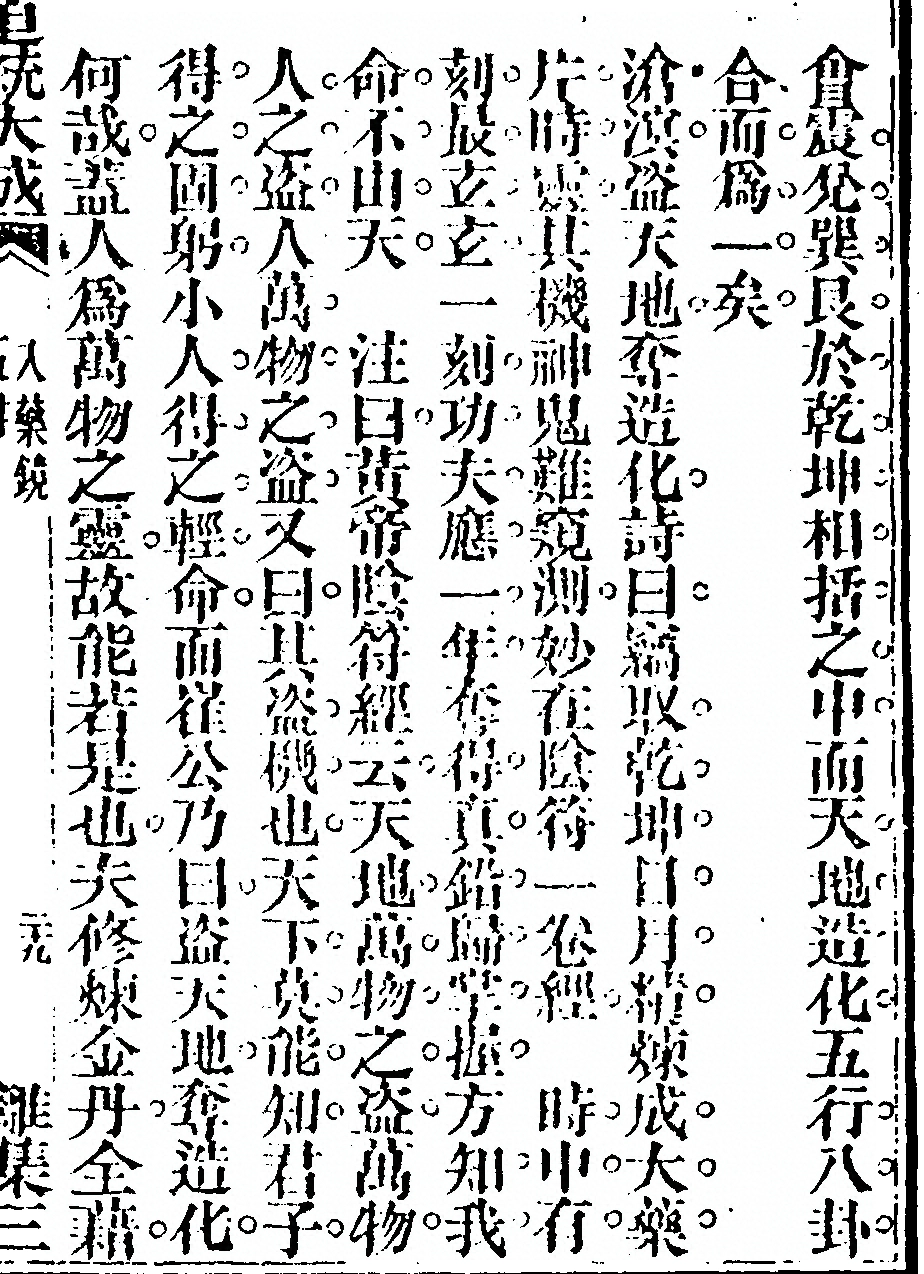 會震兌巽艮於乾坤相括之中而天地造化五行八卦
合而爲一矣
滄溟盜天地奪造化詩曰竊取乾坤日月精煉成大藥
片時靈其機神鬼難窺測妙在陰符一卷經 時中有
刻最玄玄一刻功夫應一年奪得真鉛歸掌握方知我
命不由天 注曰黃帝陰符經云天地萬物之盜萬物
人之盜人萬物之盜又曰其盜機也天下莫能知君子
得之固躬小人得之輕命而崔公乃曰盜天地奪造化
何哉蓋人爲萬物之靈故能若是也夫修煉金丹全藉
大成
入藥鏡
元
雜集三